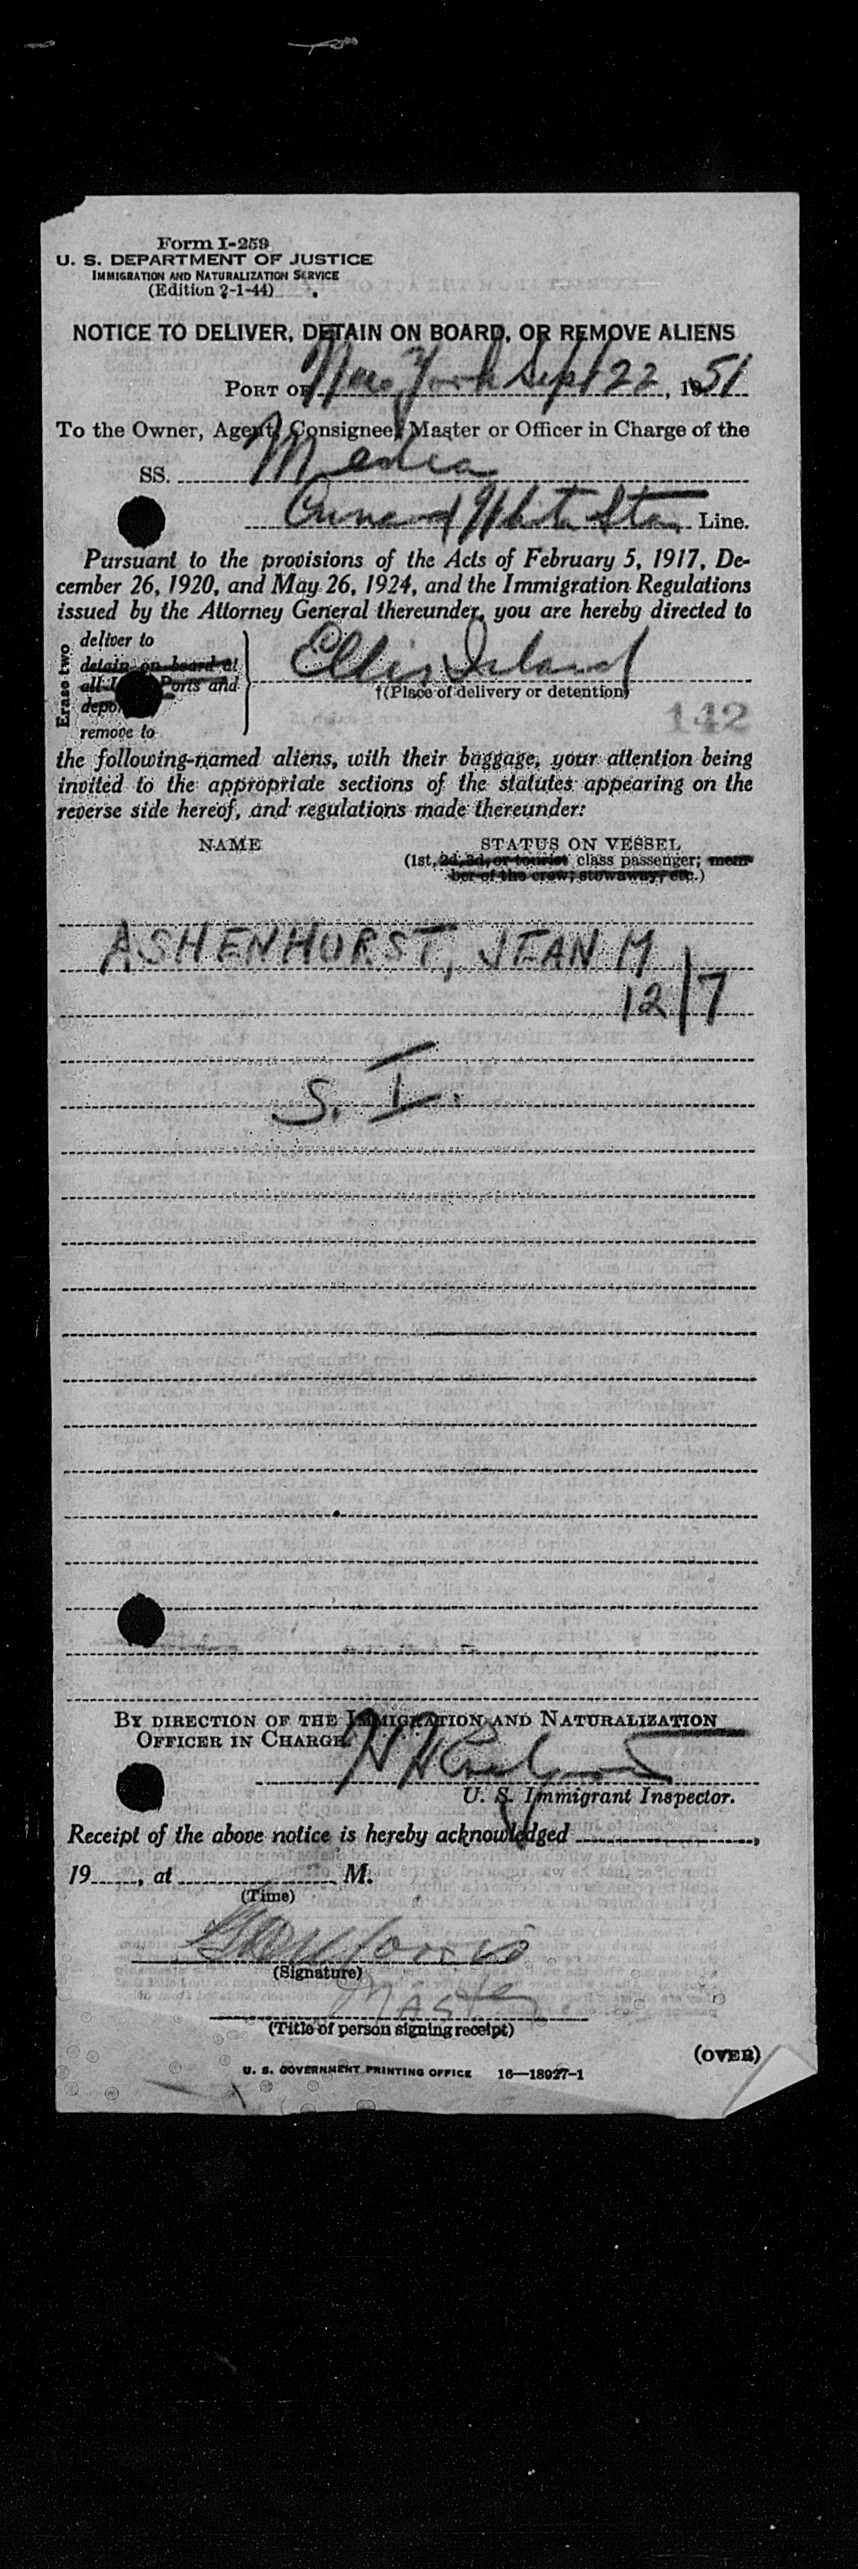 Form I-259
U. S. DEPARTMENT OF JUSTICE
IMMIGRATION AND NATURALIZATION SERVICE
(Edition 2-1-44)
NOTICE TO DELIVER, DETAIN ON BOARD, OR REMOVE ALIENS
PORT OF New York Sept 22, 1951
To the Owner, Agent, Consignee, Master or Officer in Charge of the
SS. Media
Cunard White Star Line.
Pursuant to the provisions of the Acts of February 5, 1917, De-
cember 26, 1920, and May 26, 1924, and the Immigration Regulations
issued by the Attorney General thereunder, you are hereby directed to
Erase two
deliver to
detain on board at
all Ports and
remove to
Ellis Island
†(Place of delivery or detention)
142
the following-named aliens, with their baggage, your attention being
invited to the appropriate sections of the statutes appearing on the
reverse side hereof, and regulations made thereunder:
NAME STATUS ON VESSEL
(1st, 2d, 3d, or tourist class passenger; mem-
ber of the crew; stowaway, etc.)
ASHENHORST, JEAN M
12/7
S. I.
BY DIRECTION OF THE IMMIGRATION AND NATURALIZATION
OFFICER IN CHARGE.
U. S. Immigrant Inspector.
Receipt of the above notice is hereby acknowledged ,
19 , at M.
(Time)
(Signature)
Master
(Title of person signing receipt)
(OVER)
U. S. GOVERNMENT PRINTING OFFICE 16—18927-1